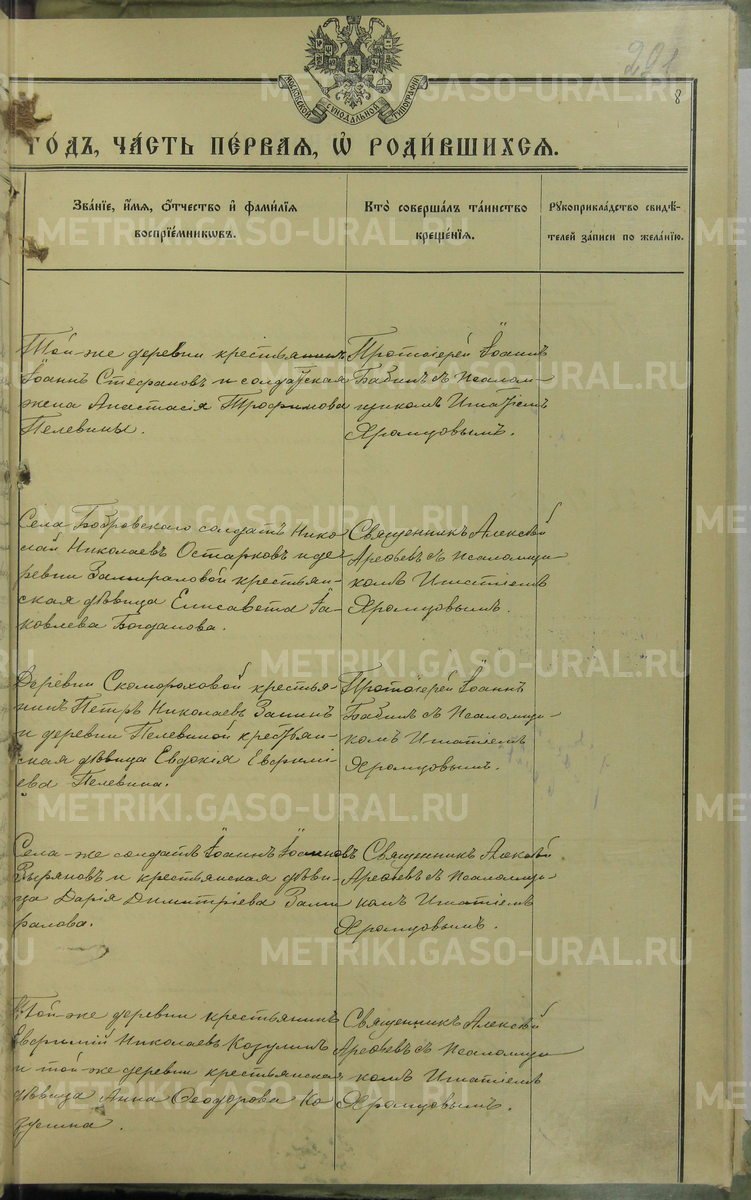 291
8
МОСКОВСКОЙ СѴНОДАЛЬНОЙ ТИПОГРАФІИ
ГО́ДЪ, ЧА́СТЬ ПЕ́РВАЯ, Ѡ҆ РОДИ́ВШИХСЯ.
Зва́нїе, и҆́мя, ѻ҆́тчество и҆ фами́лїя воспрїе́мникѡвъ.
Кто̀ соверша́лъ та́инство креще́нїя.
Рꙋкоприкла́дство свидѣ́телей за́писи по жела́нїю.
Той-же деревни крестьянинъ
Іоаннъ Стефановъ и солдатская
жена Анастасія Трофимова
Пелевины.
Протоіерей Іоаннъ
Бабинъ съ Псалом-
щикомъ Игнатіемъ
Хромцовымъ.
Села Бобровскаго солдатъ Нико
лай Николаевъ Остарковъ и де
ревни Замираловой крестьян-
ская дѣвица Елисавета Іа-
ковлева Богданова.
Священникъ Алексѣй
Арефьевъ съ Псаломщи-
комъ Игнатіемъ
Хромцовымъ.
Деревни Скомороховой крестья-
нинъ Петръ Николаевъ Занинъ
и деревни Пелевиной крестьян-
ская дѣвица Евдокія Евфимі-
ева Пелевина.
Протоіерей Іоаннъ
Бабинъ съ Псаломщи-
комъ Игнатіемъ
Хромцовымъ.
Села-же солдатъ Іоаннъ Іоанновъ
Зыряновъ и крестьянская дѣви-
ца Дарія Димитріева Зами
ралова.
Священникъ Алексѣй
Арефьевъ съ Псаломщи-
комъ Игнатіемъ
Хромцовымъ.
Той-же деревни крестьянинъ
Евфимій Николаевъ Козулинъ
и той-же деревни крестьянская
дѣвица Анна Ѳеодорова Ко
зулина.
Священникъ Алексѣй
Арефьевъ съ Псаломщи
комъ Игнатіемъ
Хромцовымъ.
METRIKI.GASO-URAL.RU